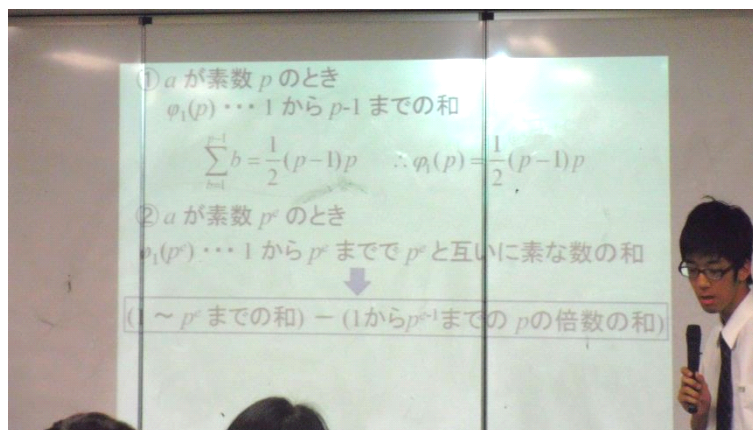 ① a が素数 p のとき
φ₁(p) ・・・ 1 から p-1 までの和
∑_{b=1}^{p-1} b = 1/2 (p-1)p ∴ φ₁(p) = 1/2 (p-1)p
② a が素数 pᵉ のとき
φ₁(pᵉ) ・・・ 1 から pᵉ までで pᵉ と互いに素な数の和
(1 ~ pᵉ までの和) － (1からpᵉ⁻¹までの pの倍数の和)